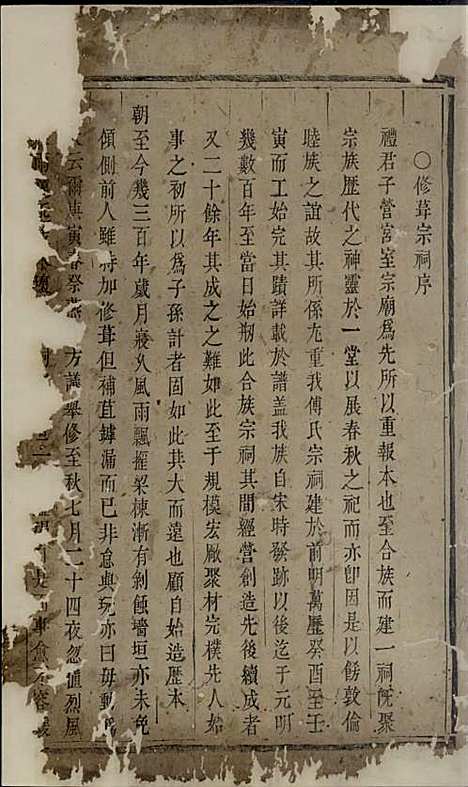 ○修葺宗祠序
禮君子營宮室宗廟爲先所以重報本也至合族而建一祠旣聚
宗族歷代之神靈於一堂以展春秋之祀而亦卽因是以餙敦倫
睦族之誼故其所係尤重我傅氏宗祠建於前明萬歷癸酉至壬
寅而工始完其蹟詳載於譜蓋我族自宋時發跡以後迄于元明
幾數百年至當日始剏此合族宗祠其間經營創造先後續成者
又二十餘年其成之之難如此至于規模宏厰聚材完樸先人始
事之初所以爲子孫計者固如此其大而遠也顧自始造歷本
朝至今幾三百年歲月寖乆風雨飄搖梁棟漸有剝蝕墻垣亦未免
傾側前人雖時加修葺但補苴罅漏而已非怠與玩亦曰毋動爲
云爾與寅春祭 方議舉修至秋七月二十四夜忽值烈風